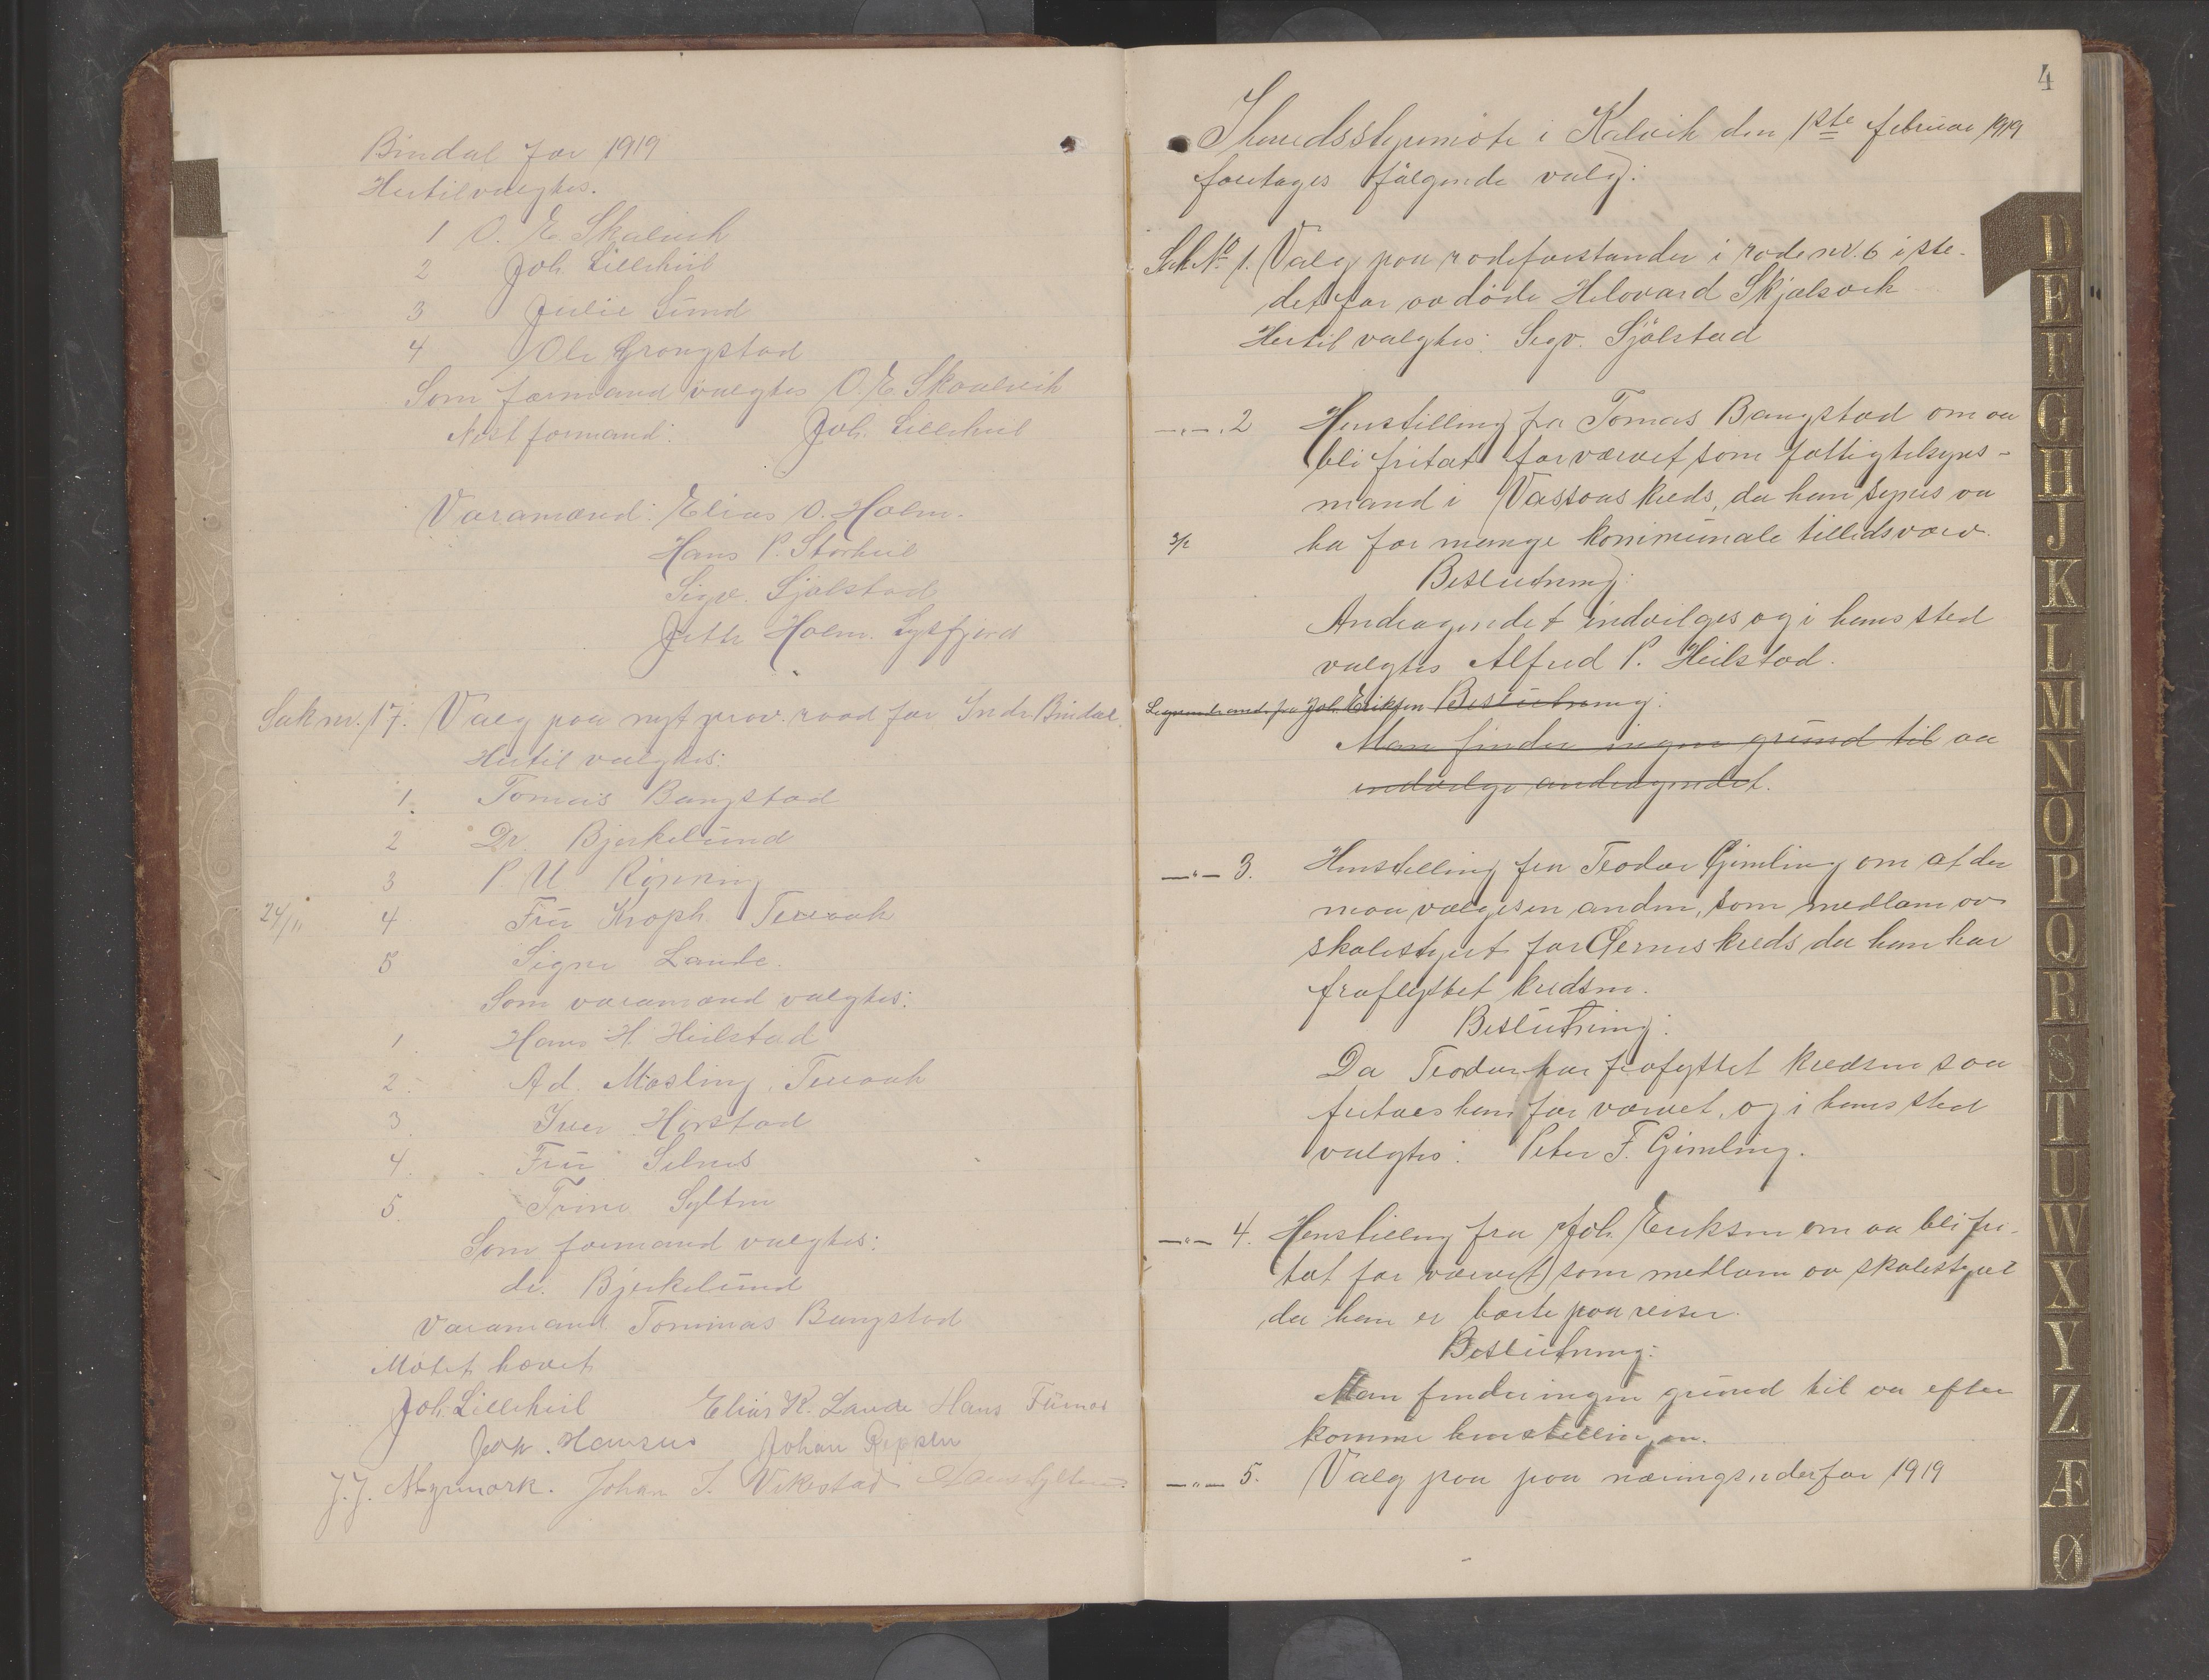 Bindal for 1919
Hertil valgtes.
1 O. E Skalvik
2 Joh Lilleheil
3 Julie Sund
4 Ole Grongstad
Som formand valgtes O. E. Skaalvik
Næst formand: Joh. Lilleheil
Varamænd: Elias O. Holm.
Hans P. Storheil
Sigv. Sjølstad
Holm.
Sak nr. 17. Valg paa nyt prov. raad for Indr. Bindal.
Hertil valgtes:
1. Tomas Bangstad
2 Dr. Bjerkelund
3 P. U
24/11 4 Fru Kroph. Terraak
5 Signe Lande.
Som varamænd valgtes:
1 Hans H. Heilstad
2. Ad. Mosling, Terraak
3. Iver Horstad
4. Fru Selnes
5. Trine Sylten
Som formand valgtes:
dr. Bjerkelund
Varamand Tommas Bangstad
Møtet hævet
Joh. Lilleheil Elias K. Lande Hans
Hansen Johan
J. J. Myrmork. Johan I. Vikestad Hans Sylten
4
Herredsstyremøte i Kalvik den 1ste februar 1919
foretages følgende valg:
Sak No 1. Valg paa rodeforstander i rode nr. 6 i ste-
det for av døde Helovard Skjelsvik
Hertil valgtes: Sigv. Sjølstad
—"— 2 Henstilling fra Tomas Bangstad om aa
bli fritat for vervet som fattigtilsyns-
mand i Vassaas kreds, da han synes aa
3/2 ha for mange kommunale tillidsverv.
Beslutning:
Andragendet indvilges og i hans sted
valgtes Alfred P. Heilstad.
fra Joh. Eriksen Beslutning:
Man finder ingen grund til aa
indvilge andragendet.
—"— 3. Henstilling fra Teodor Gimling om at der
maa vælges en anden, som medlam av
skolestyret for kreds da han har
fraflyttet kredsen.
Beslutning:
Da Teodor har frafyttet kredsen saa
fritaes han for vervet, og i hans sted
valgtes: Peter F. Gimling.
—"— 4. Henstilling fra Joh. Eriksen om aa bli fri-
tat for vervet som medlam av skolestyret
da han er borte paa reiser.
Beslutning:
Man finder ingen grund til aa efter
komme henstillingen.
—"— 5. Valg paa paa næringsrederfor 1919
D
E
F
G
H
J
K
L
M
N
O
P
Q
R
S
T
U
W
X
Y
Z
Æ
Ø